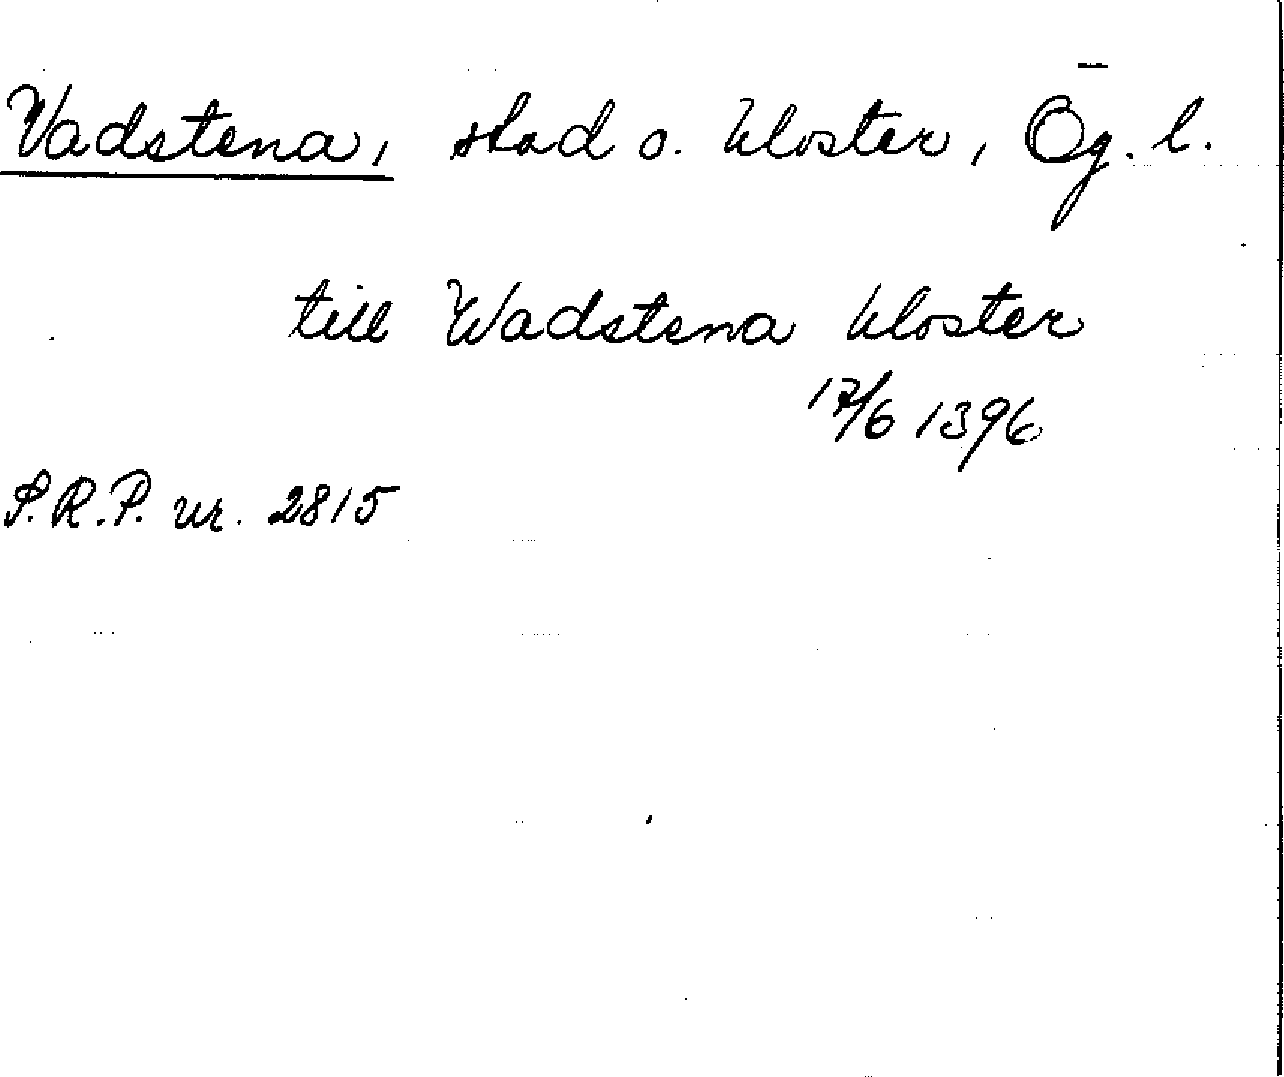 Vadstena, stad o. kloster, Ög. l.
till Wadstena kloster
17/6 1396
S.R.P. nr. 2815